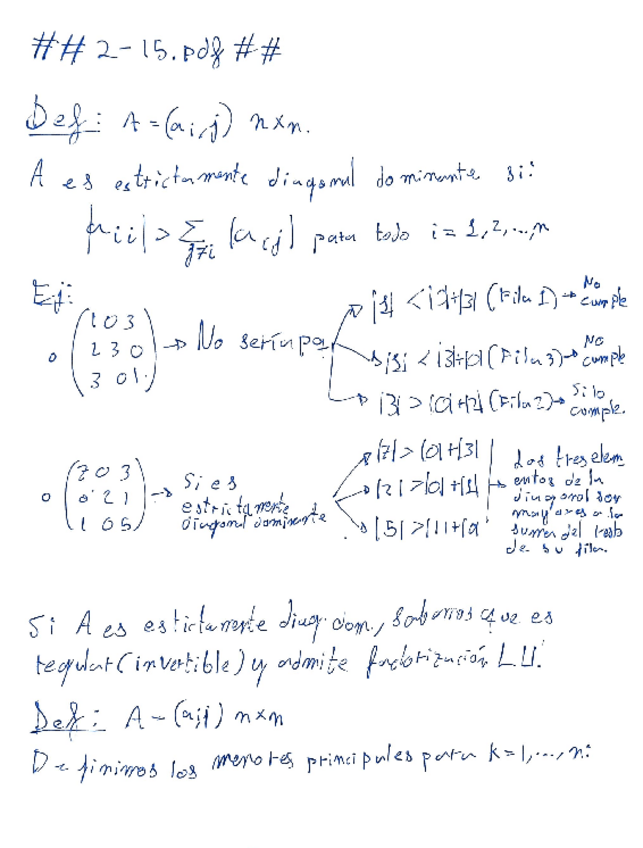 ## 2-15.pdf ##
Def: A = (ai,j) n×n.
A es estrictamente diagonal dominante si:
|aii| > Σj≠i |aij| para todo i = 1,2,...,n
Ej:
(1 0 3
2 3 0
3 0 1) → No sería
|1| < |0|+|3| (Fila 1) → No cumple
|1| < |3|+|0| (Fila 3) → No cumple
|3| > |0|+|2| (Fila 2) → Si lo cumple.
(7 0 3
0 2 1
1 0 5) → Si es estrictamente diagonal dominante
|7| > |0|+|3|
|2| > |0|+|1|
|5| > |1|+|0|
→ Los tres elementos de la diagonal son mayores a la suma del resto de su fila.
Si A es estictamente diag. dom., sabemos que es
regular (invertible) y admite factorización LU.
Def: A = (aij) n×n
Definimos los menores principales para k = 1,..., n: